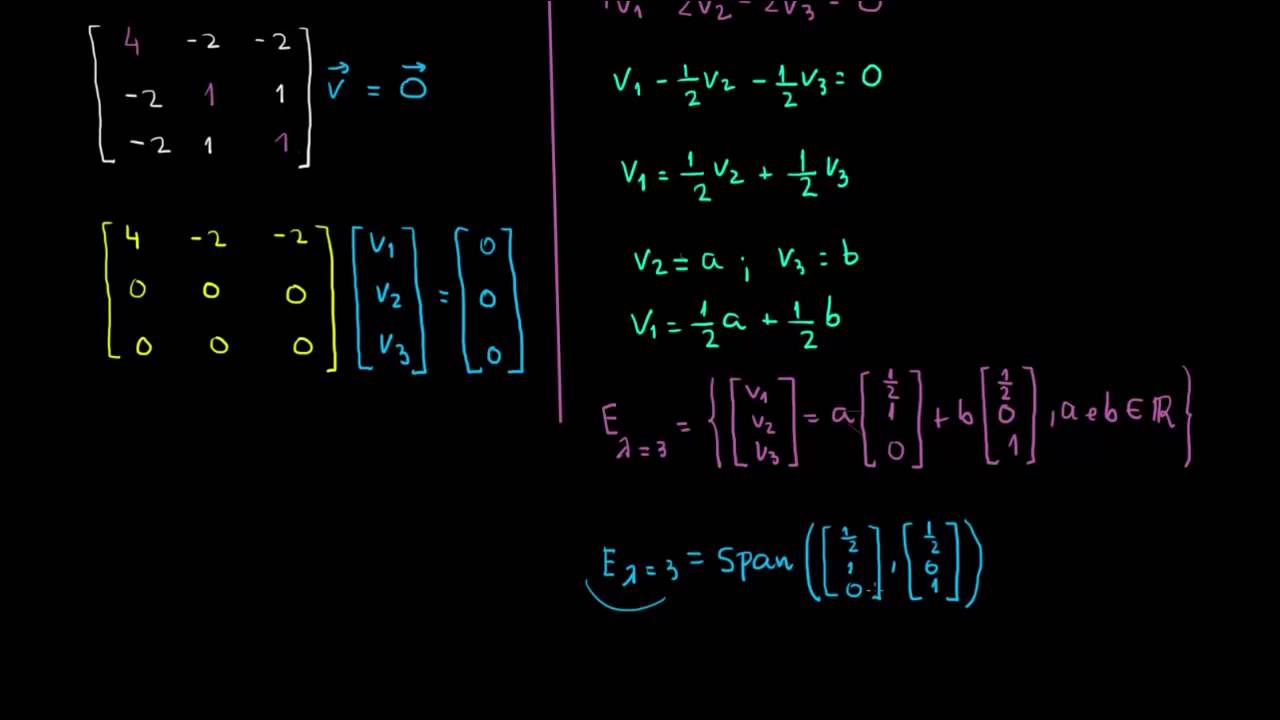 4 -2 -2
-2 1 1 v⃗ = 0⃗
-2 1 1
4 -2 -2 v₁ 0
0 0 0 v₂ = 0
0 0 0 v₃ 0
v₁ - 1/2 v₂ - 1/2 v₃ = 0
v₁ = 1/2 v₂ + 1/2 v₃
v₂ = a ; v₃ = b
v₁ = 1/2 a + 1/2 b
E_λ=3 = { [v₁ v₂ v₃] = a [1/2 1 0] + b [1/2 0 1] , a e b ∈ ℝ }
E_λ=3 = Span ( [1/2 1 0] , [1/2 0 1] )